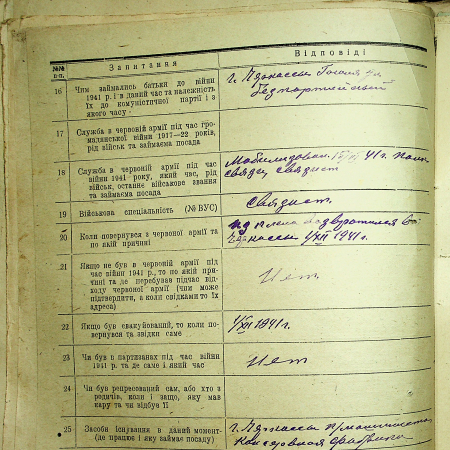 №№ п-п.
Запитання
Відповіді
16
Чим займались батьки до війни
1941 р. і в даний час та належність
їх до комуністичної партії і з
якого часу
г. Черкассы Гоголя
Безпартийный
17
Служба в червоній армії під час гро-
мадянської війни 1917—22 років,
рід військ та займаєма посада
18
Служба в червоній армії під час
війни 1941 року, який час, рід
військ, останнє військове звання
та займаєма посада
Мобилизован 41 г.
связи, связист
19
Військова спеціальність (№ ВУС)
связист
20
Коли повернувся з червоної армії та
по якій причині
из плена возвратился в
Черкассы 1/XII 1941 г.
21
Якщо не був в червоній армії під
час війни 1941 р., то по якій при-
чині та де перебував підчас від-
ходу червоної армії (чим може
підтвердити, а коли свідками то їх
адреса)
Нет
22
Якщо був евакуйований, то коли по-
вернувся та звідки саме
1/XII 1941 г.
23
Чи був в партизанах під час війни
1941 р. та де саме і який час
Нет
24
Чи був репресований сам, або хто з
родичів, коли і защо, яку мав
кару та чи відбув її
25
Засоби існування в даний момент
(де працює і яку займає посаду)
г. Черкассы
консервная фабрика